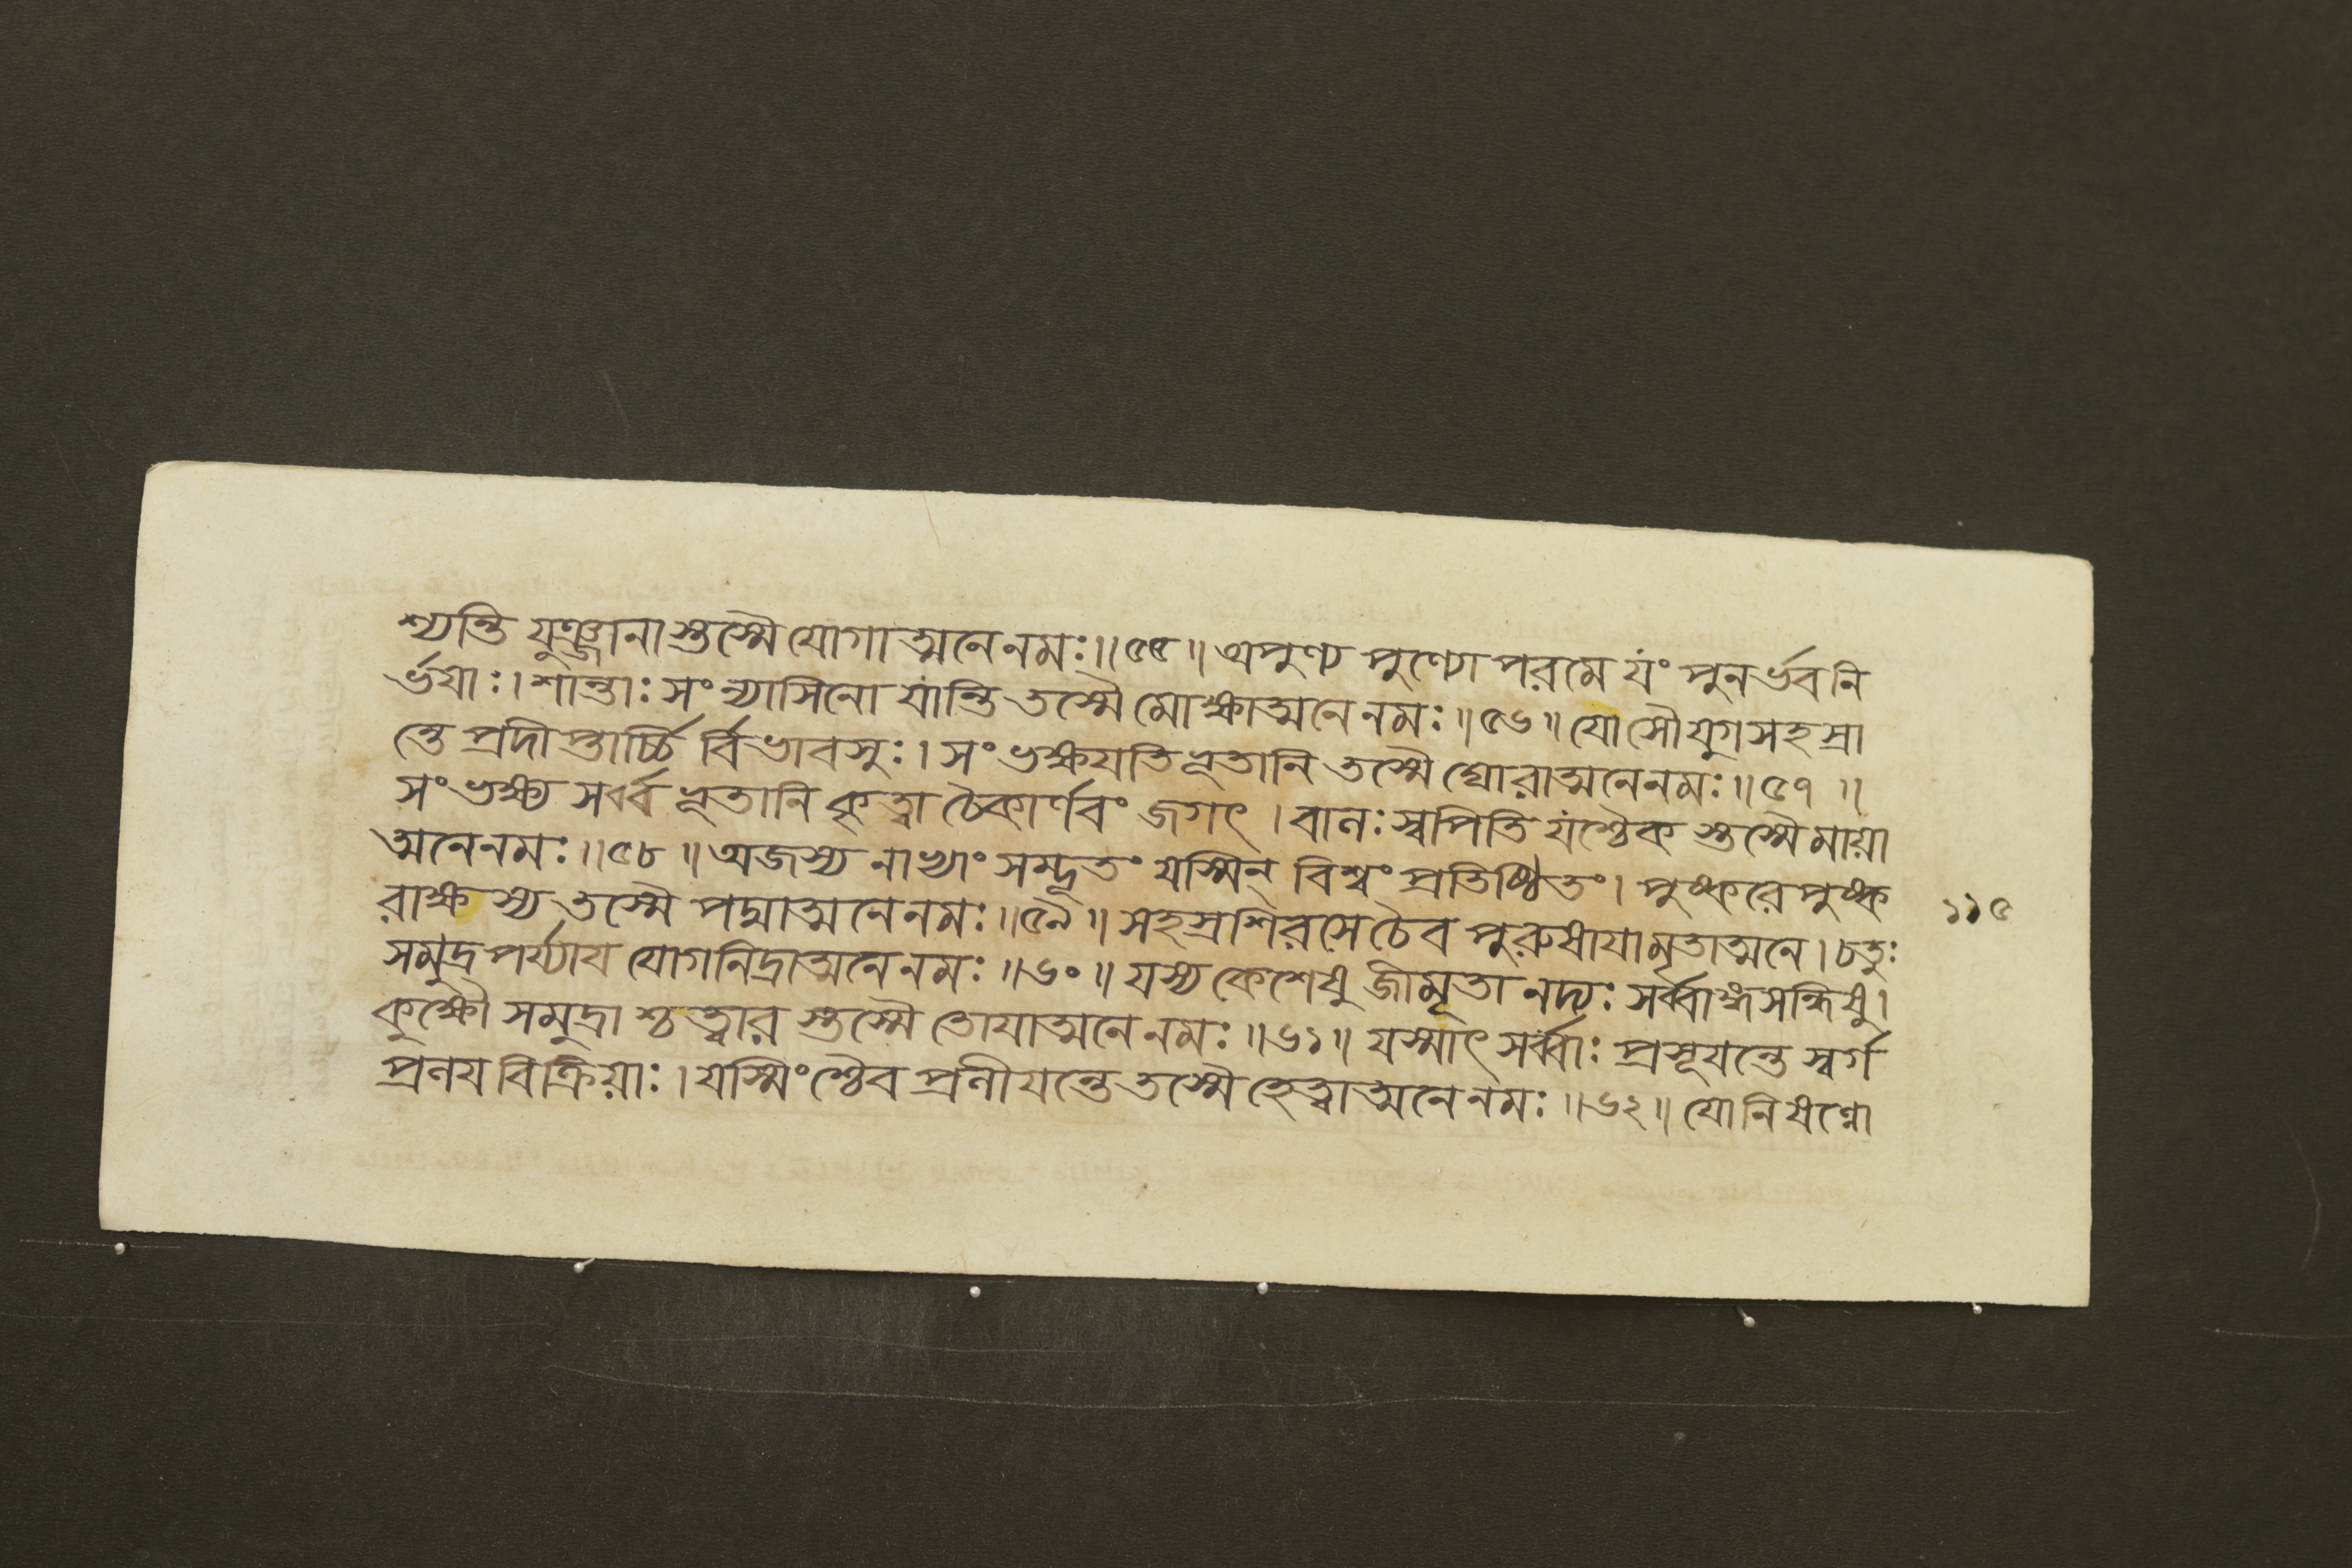 শ্যন্তি যুঞ্জানাস্তস্মৈ যোগাত্মনে নমঃ॥৫৫॥ অপুণ্য পুণ্যো পরমে যং পুনর্ভবনি
র্ভয়াঃ। শান্তাঃ সংন্যাসিনো যান্তি তস্মৈ মোক্ষাত্মনে নমঃ॥৫৬॥ যোসৌ যুগসহস্রা
ন্তে প্রদীপ্তার্চ্চির্বিভাবসুঃ। সংভক্ষয়তি ভূতানি তস্মৈ ঘোরাত্মনে নমঃ॥৫৭॥
সংভক্ষ্য সর্ব্বভূতানি কৃত্বা চৈকার্ণবং জগৎ। বালঃ স্বপিতি যশ্চৈক স্তস্মৈ মায়া
ত্মনে নমঃ॥৫৮॥ অজস্য নাভ্যাং সম্ভূতং যস্মিন্ বিশ্বং প্রতিষ্ঠিতং। পুষ্করে পুষ্ক
রাক্ষস্য তস্মৈ পদ্মাত্মনে নমঃ॥৫৯॥ সহস্রশিরসে চৈব পুরুষায়ামৃতাত্মনে। চতুঃ
সমুদ্রপর্য্যায় যোগনিদ্রাত্মনে নমঃ॥৬০॥ যস্য কেশেষু জীমূতা নদ্যঃ সর্ব্বাঙ্গসন্ধিষু।
কুক্ষৌ সমুদ্রাশ্চত্বার স্তস্মৈ তোয়াত্মনে নমঃ॥৬১॥ যস্মাৎ সর্ব্বাঃ প্রসূয়ন্তে স্বর্গ
প্রলয় বিক্রিয়াঃ। যস্মিংশ্চৈব প্রলীয়ন্তে তস্মৈ হেত্বাত্মনে নমঃ॥৬২॥ যো নিষণ্ণো
১১৫